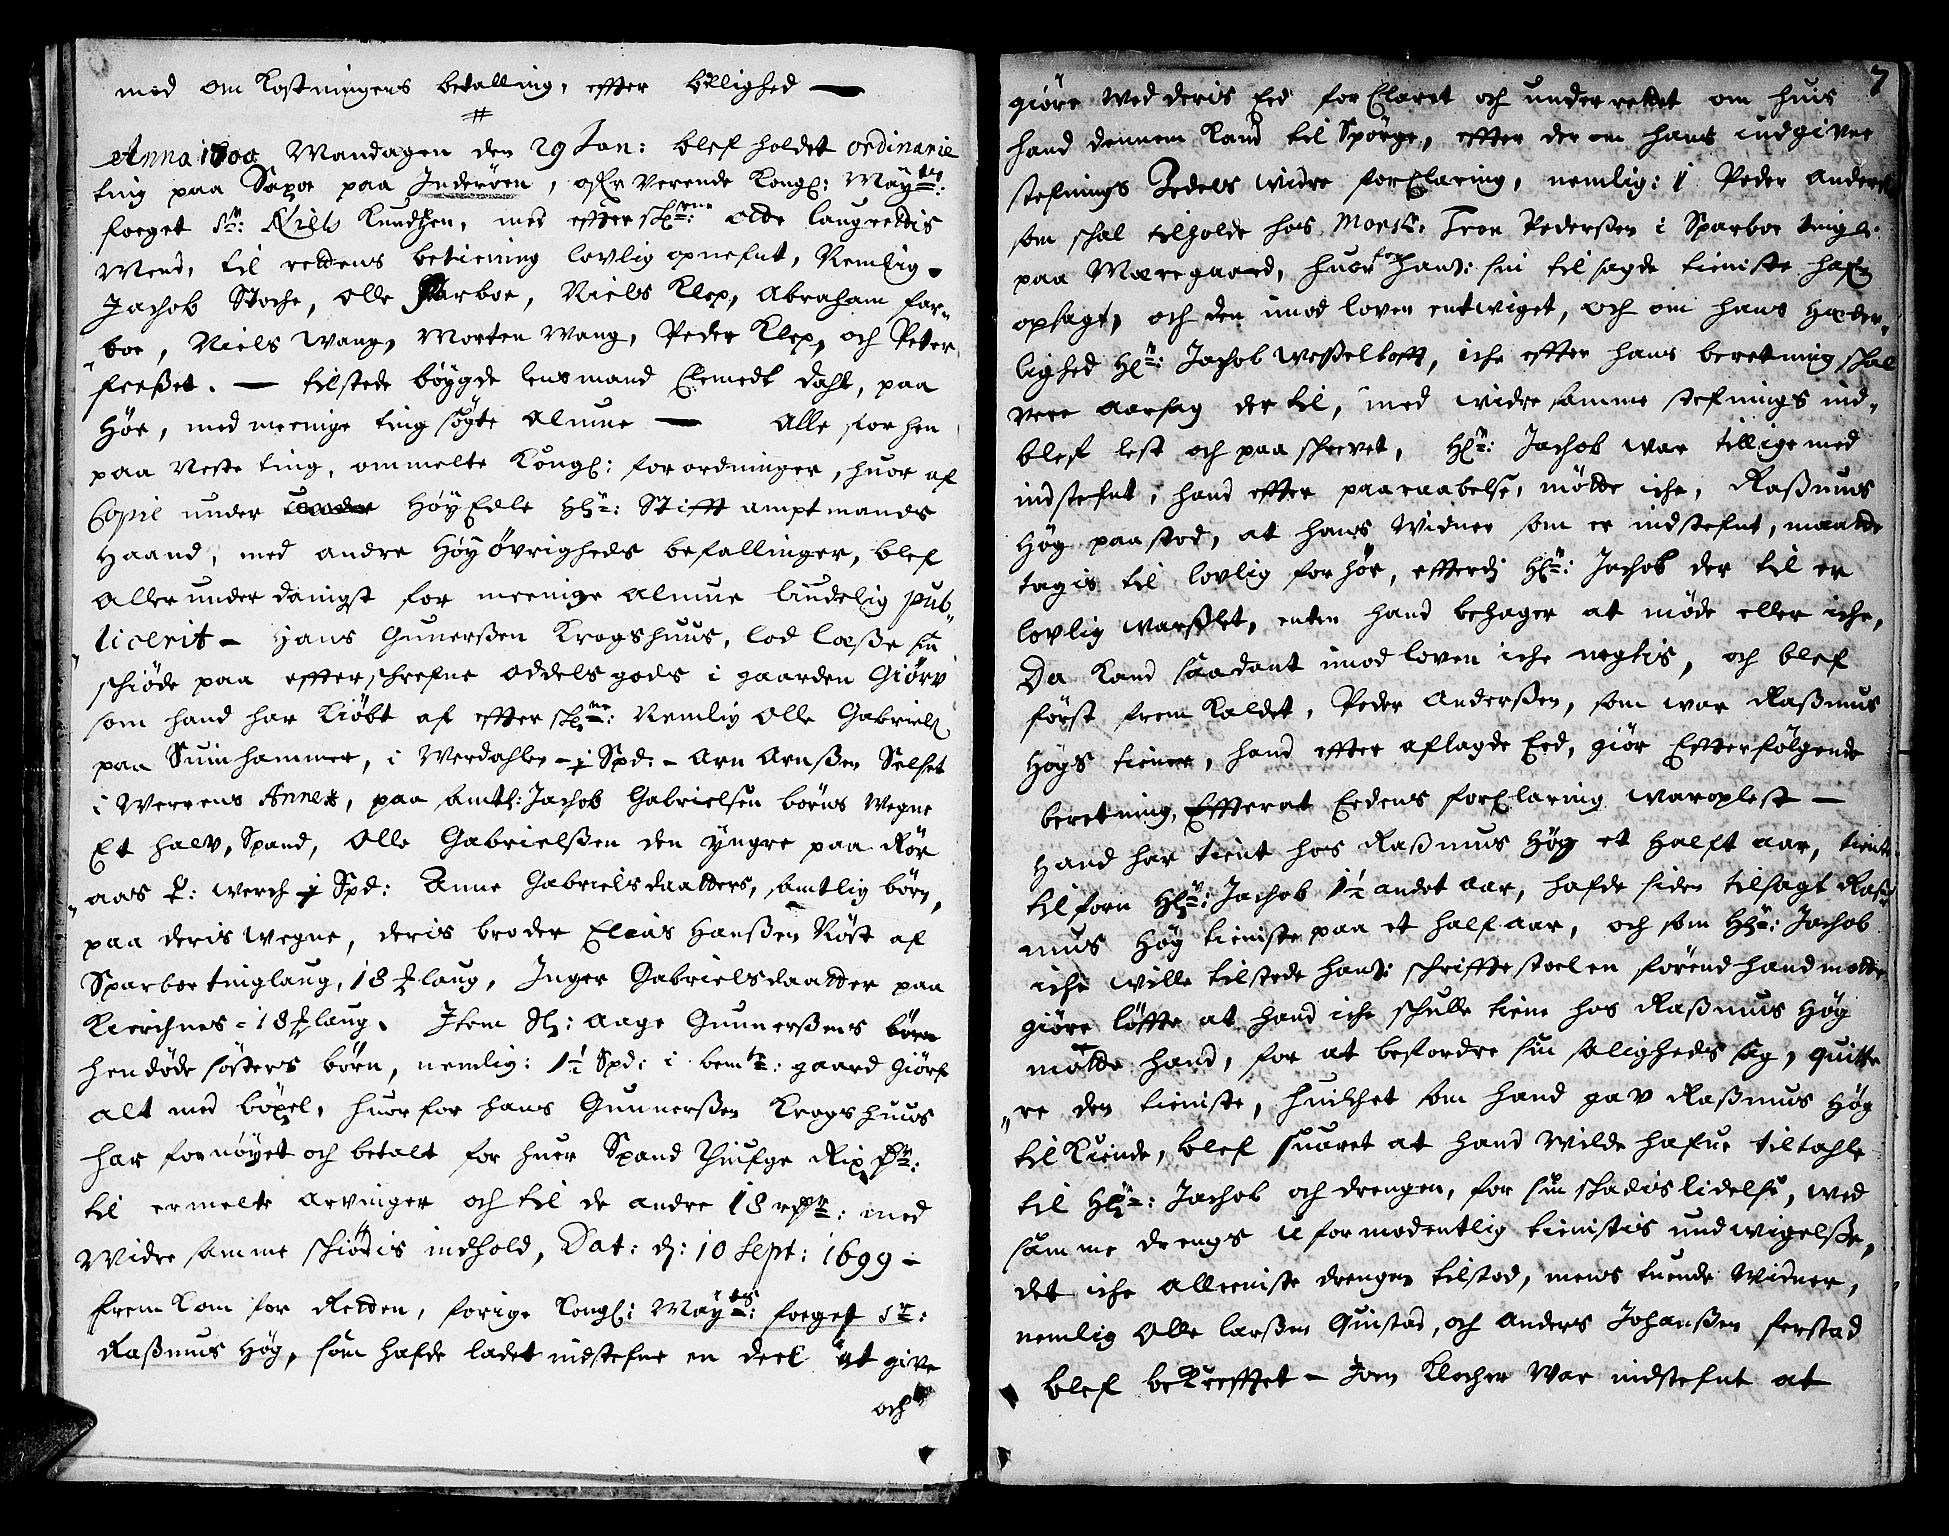 med om Kostningens betalling, effter billighed —
#
Anno 1700 Mandagen den 29 Jan: blef holdet ordinarie
ting paa Saxoe paa Inderöen, ofver verende Kongl: Maÿtz:
foeget Sr: Niels Knudtzen, med effterschrne: otte laugrettis
Mend, til rettens betiening lovlig opnefnt, Nemlig.
Jachob Stoche, Olle Farboe, Niels Klep, Abraham far„
„boe, Niels Wang, Morten Wang, Peder Klep, och Peter
freßet. — tilstede böygde lensmand Clemedt Dahl, paa
Höe, med meenige ting sögte almue — Alle for hen
paa Neste ting, ommelte Kongl: forordninger, huor af
Copie under HöyEdle Hr: Stifft amptmands
Haand, med andre Höyövrigheds befallinger, blef
allerunderdanigst for meenige almue liudelig pub„
licerit – Hans Gunerßen Krogshuus, lod læße sin
schiöde paa effterschrefne oddels gods i gaarden Giörv
som hand har kiöbt af effterschrne: Nemlig Olle Gabriels
paa Suinhammer, i Werdahlen – 1 Spd: – Arn Arnßen Selset
i Werrens Annex, paa samtl: Jachob Gabrielsen börns Wegne
Et halv, Spand, Olle Gabrielßen den yngre paa Rör
„aas werch 1 Spd: Anne Gabrielsdaatters, samtlig börn,
paa deris Wegne, deris broder Elias Hanßen Röst af
Sparboe tinglaug, 18 laug, Inger Gabrielsdaatter paa
Kirchnes – 18 laug. Item Sl: Aage Gunnerßens börn
hendöde sösters börn, nemlig: 1½ Spd: i bemte: gaard Giörf
alt med böxel, huorfor hans Gunnerßen Krogshuus
har fornöyet och betalt for huer Spand Thiufge Rix dr:
til ermelte arvinger och til de andre 18 rdr: med
Widre samme schiödis indhold, Dat: d: 10 Sept: 1699 –
frem Kom for Retten, forige Kongl: Maÿtz: foeget Sr:
Raßmus Hög, som hafde ladet indstefne en deel at give
och
7
giöre Wed deris Eed forClaret och underrettet om huis
hand dennem Kand til Spörge, effter der om hans indgivne
stefnings Zedels Widre forClaring, nemlig: 1 Peder Anders
som schal tilholde hos Monsr. Tron Pederßen i Sparboe tingl:
paa Mæregaard, huor hans: sin til sagde tieniste hafr
opsagt, och den imod loven entwiget, och om hans Hæder„
lighed Hr: Jachob Weßeltofft, iche effter hans beretning schal
vere aarsag der til, med widre samme stefnings ind„
blef lest och paaschrevet, Hr: Jachob war tillige med
indstefnt, hand effter paaraabelse, mötte iche, Raßmus
Hög paastod, at hans Widner som er indstefnt, maatte
tagis til lovlig forhör, efferdj Hr: Jachob der til er
lovlig warßlet, enten hand behager at möde eller iche,
Da Kand saadant imod loven iche negtis, och blef
först frem Kaldet, Peder Anderßen, som war Raßmus
Högs tiener, hand effter aflagde Eed, giör Efterfölgende
beretning, Effterat Eedens forClaring war oplest —
Hand har tient hos Raßmus Hög et Halft aar, tiente
tilforn Hr: Jachob 1½ andet aar, hafde siden tilsagt Raß„
mus Hög tieniste paa et half aar, och som Hr: Jachob
iche wille tilstede hans: schrifftestoelen förend hand motte
giöre löffte at hand iche schulle tiene hos Raßmus Hög
mötte hand, for at befordre sin saligheds sag, quitte
„re den tieniste, huilchet som hand gav Raßmus Hög
til Kiende, blef suaret at hand Wilde hafue tiltahle
til Hr: Jachob och drengen, for sin schadis lidelse, wed
samme drengs uformodentlig tienistis undwigelße,
det iche alleeniste drengen tilstod, mens tuende Widner,
nemlig Olle Larßen Quistad, och Anders Johanßen Ferstad
blef beKrefftet – Joen Klocher War indstefnt at